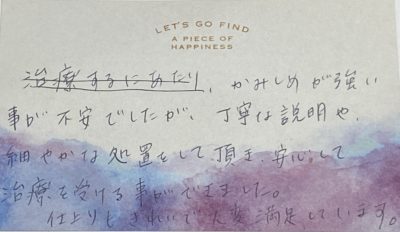 LET'S GO FIND
A PIECE OF
HAPPINESS
治療するにあたり、かみしめが強い
事が不安でしたが、丁寧な説明や、
細やかな処置をして頂き、安心して
治療を受ける事ができました。
仕上りもきれいで大変満足しています。